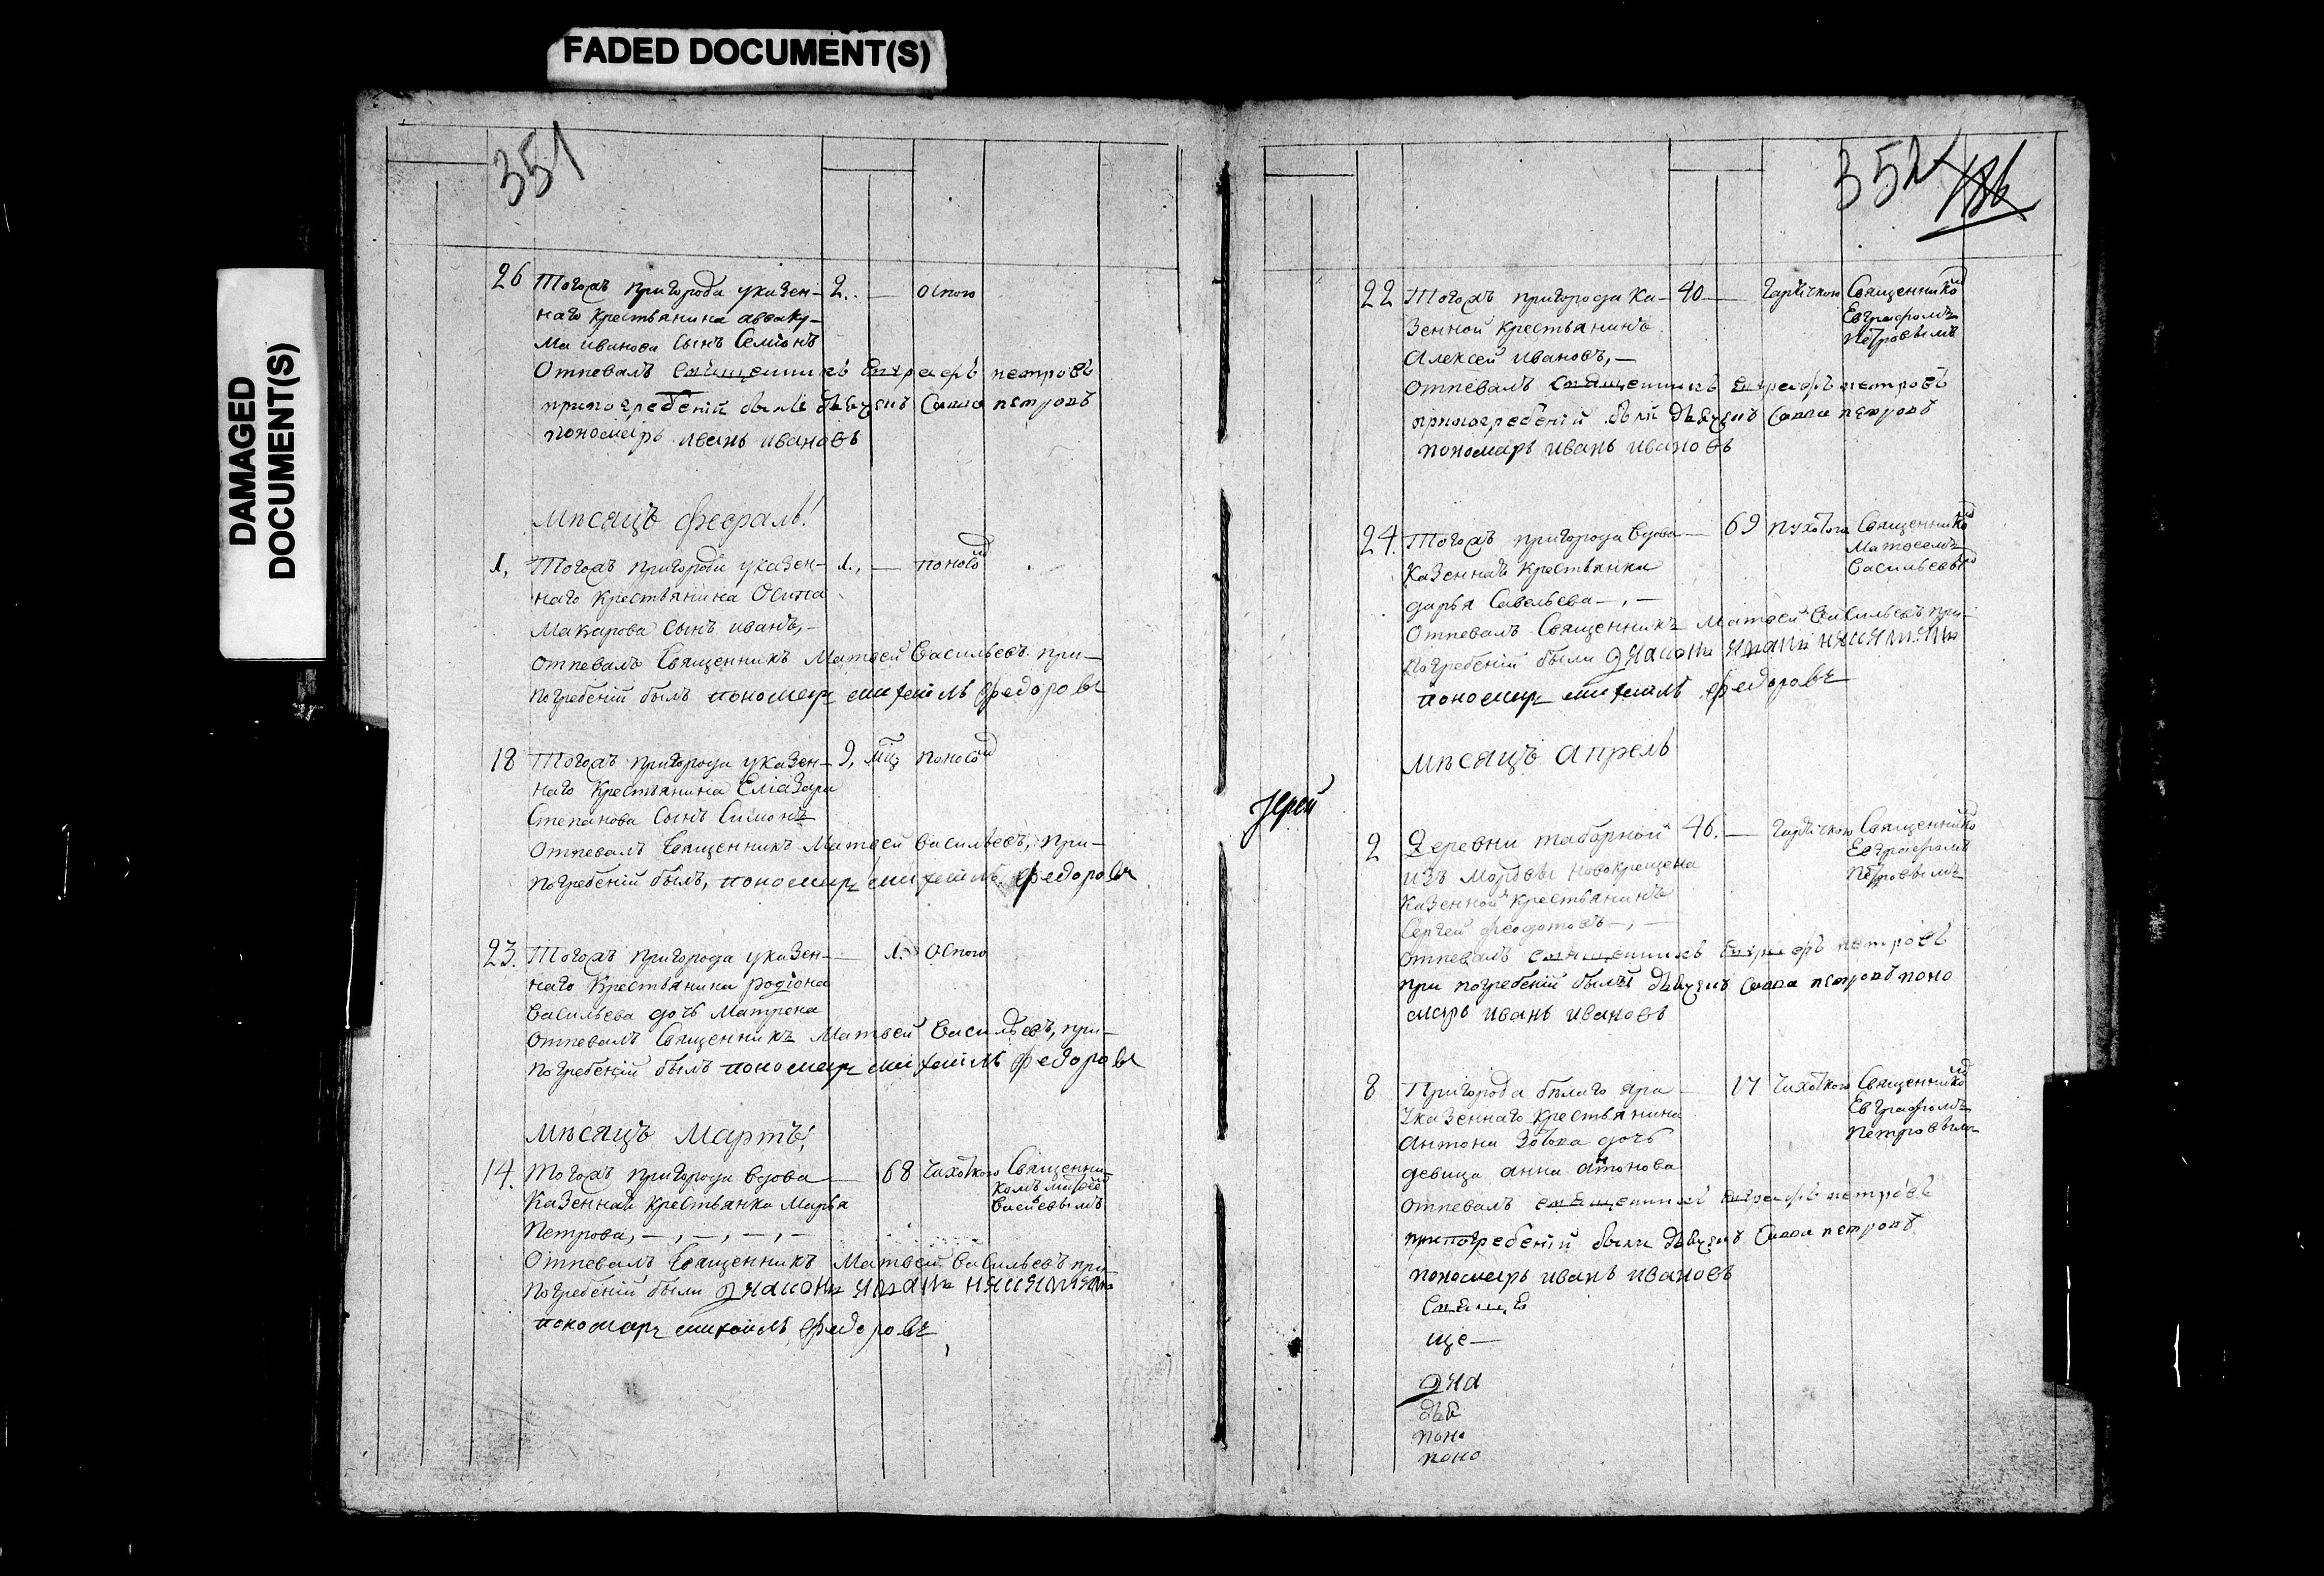 FADED DOCUMENT(S)
DAMAGED
DOCUMENT(S)
351
26 Тогожъ пригорода указен- 2. — оспою
наго крестьянина авваку-
ма иванова сынъ Семионъ
Отпевалъ священникъ Евграфъ петровъ
припогребенїй были дьячекъ Савва петровъ
пономарь иванъ ивановъ
мѣсяцъ февраль!
1, Тогожъ пригорода указен- 1., — поносо
наго крестьянина Осипа
Макарова сынъ иванъ, —
отпевалъ Священникъ Матвей Васильевъ при-
погребенїй былъ пономарь михаилъ федоровъ
18 Тогожъ пригорода указен- 9, мц поносо
наго крестьянина Елїазара
Степанова сынъ Симонъ
Отпевалъ Священникъ Матвей Васильевъ, при-
погребенїй былъ, пономарь михаилъ федоровъ
23. Тогожъ пригорода указен- — 1. оспою
наго Крестьянина родїона
Васильева дочь Матрена
отпевалъ Священникъ Матвей Васильевъ, при-
погребенїй былъ пономарь михаилъ федоровъ
мѣсяцъ Мартъ!
14. Тогожъ пригорода вдова — 68 чахоткою Священни-
казенная крестьянка Марья комъ матвее
Петрова, —, —, —, — Васильевымъ
Отпевалъ Священникъ Матвей Васильевъ при
погребенїй были дьяконъ
пономарь михаилъ федоровъ
352 186
22 Тогожъ пригорода ка- 40 — горячкою Священнико
зенной крестьянинъ Евграфомъ
Алексей ивановъ, — Петровымъ
отпевалъ священникъ Евграфъ петровъ
припогребенїй были дьячекъ Савва петровъ
пономарь иванъ ивановъ
24. Тогожъ пригорода вдова — 69 Священнико
казенная крестьянка Матвеемъ
дарья Савельева —, — Васильевы
Отпевалъ Священникъ Матвей Васильевъ при-
погребенїй были дьяконъ
пономарь михаилъ федоровъ
мѣсяцъ апрель
Іерей
2 Деревни таборной 46. — горячкою Священнико
изъ Мордвы новокрещена Евграфомъ
казенной крестьянинъ Петровымъ
Сергей феодотовъ —, —
отпевалъ священникъ Евграфъ петровъ
при погребенїй были дьячекъ Савва петровъ поно
марь иванъ ивановъ
8 Пригорода бѣлаго яра — 17 чахоткою Священнико
указеннаго крестьянина Евграфомъ
антона Зотова дочь Петровымъ
девица анна антонова
отпевалъ священникъ Евграфъ петровъ
припогребенїй были дьячекъ Савва петровъ
пономарь иванъ ивановъ
ще —
дья
дья
поно
поно